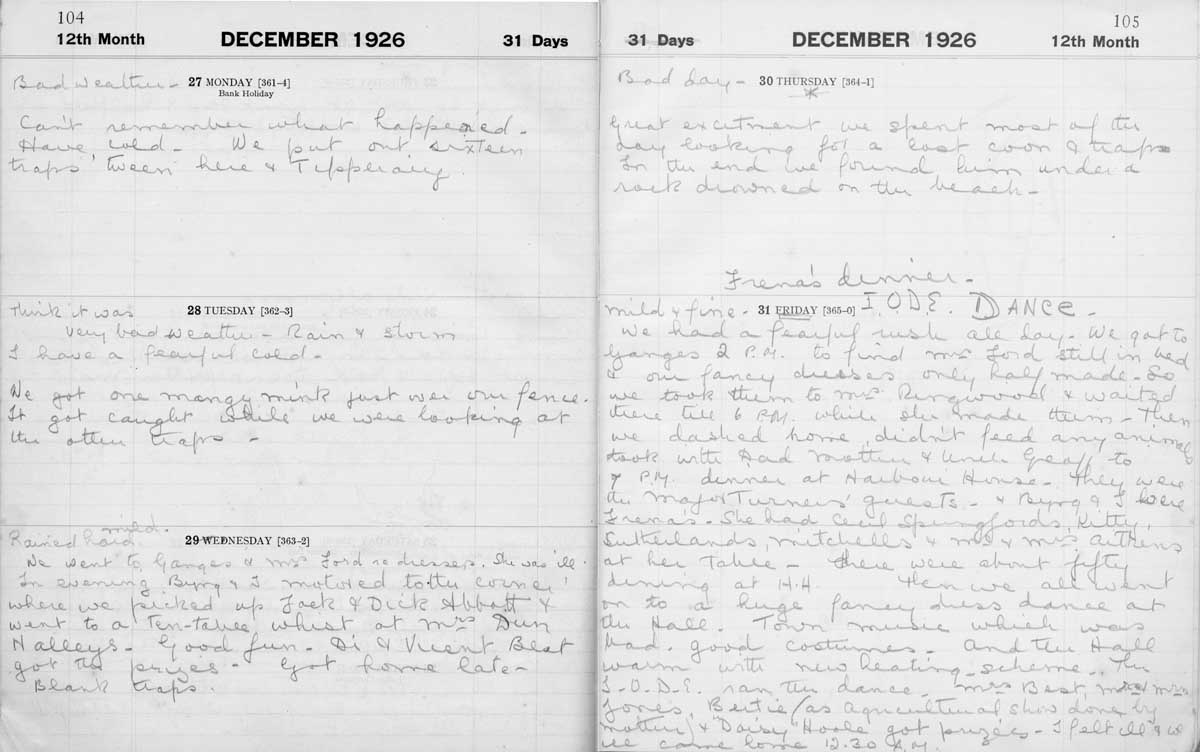 104
12th Month DECEMBER 1926 31 Days
Bad weather - 27 MONDAY [361-4]
Bank Holiday
Can't remember what happened -
Have cold - We put out sixteen
traps 'tween here & Tipperary.
think it was 28 TUESDAY [362-3]
very bad weather - Rain & storm
I have a fearful cold -
We got one mangy mink just over our fence.
It got caught while we were looking at
the other traps -
mild.
Rained hard 29 WEDNESDAY [363-2]
We went to Ganges & Mrs Ford re dresses. She was ill.
In evening Byng & I motored to the corner
where we picked up Jack & Dick Abbott &
went to a ten-table whist at Mrs Dun
Halleys - Good fun - Di & Vicent Best
got the prizes - Got home late -
Blank traps.
105
31 Days DECEMBER 1926 12th Month
Bad day - 30 THURSDAY [364-1]
Great excitment we spent most of the
day looking for a lost coon & trap
In the end we found him under a
rock drowned on the beach -
Frena's dinner -
mild & fine - 31 FRIDAY [365-0] I.O.D.E. DANCE -
We had a fearful rush all day - We got to
Ganges 2 P.M. to find Mrs Ford still in bed
& our fancy dresses only half made - So
we took them to Mrs Ringwood & waited
there till 6 P.M. while she made them - Then
we dashed home, didn't feed any animals
took with Dad Mother & Uncle Geoff to
7 P.M. dinner at Harbour House - They were
the Major Turners' guests - & Byng & I were
Frena's - She had Cecil Springfords, Kitty,
Sutherlands, Mitchells & Mr & Mrs
at her Table - there were about fifty
dining at H.H. Then we all went
on to a huge fancy dress dance at
the Hall. Town music which was
bad. good costumes - And the Hall
warm with new heating scheme. The
I.O.D.E. ran the dance - Mrs Best, Mr & Mrs
Jones, Bertie (as Agricultural show done by
mother) & Daisy Hoole got prizes - I felt ill & we
all came home 12.30 A.M.